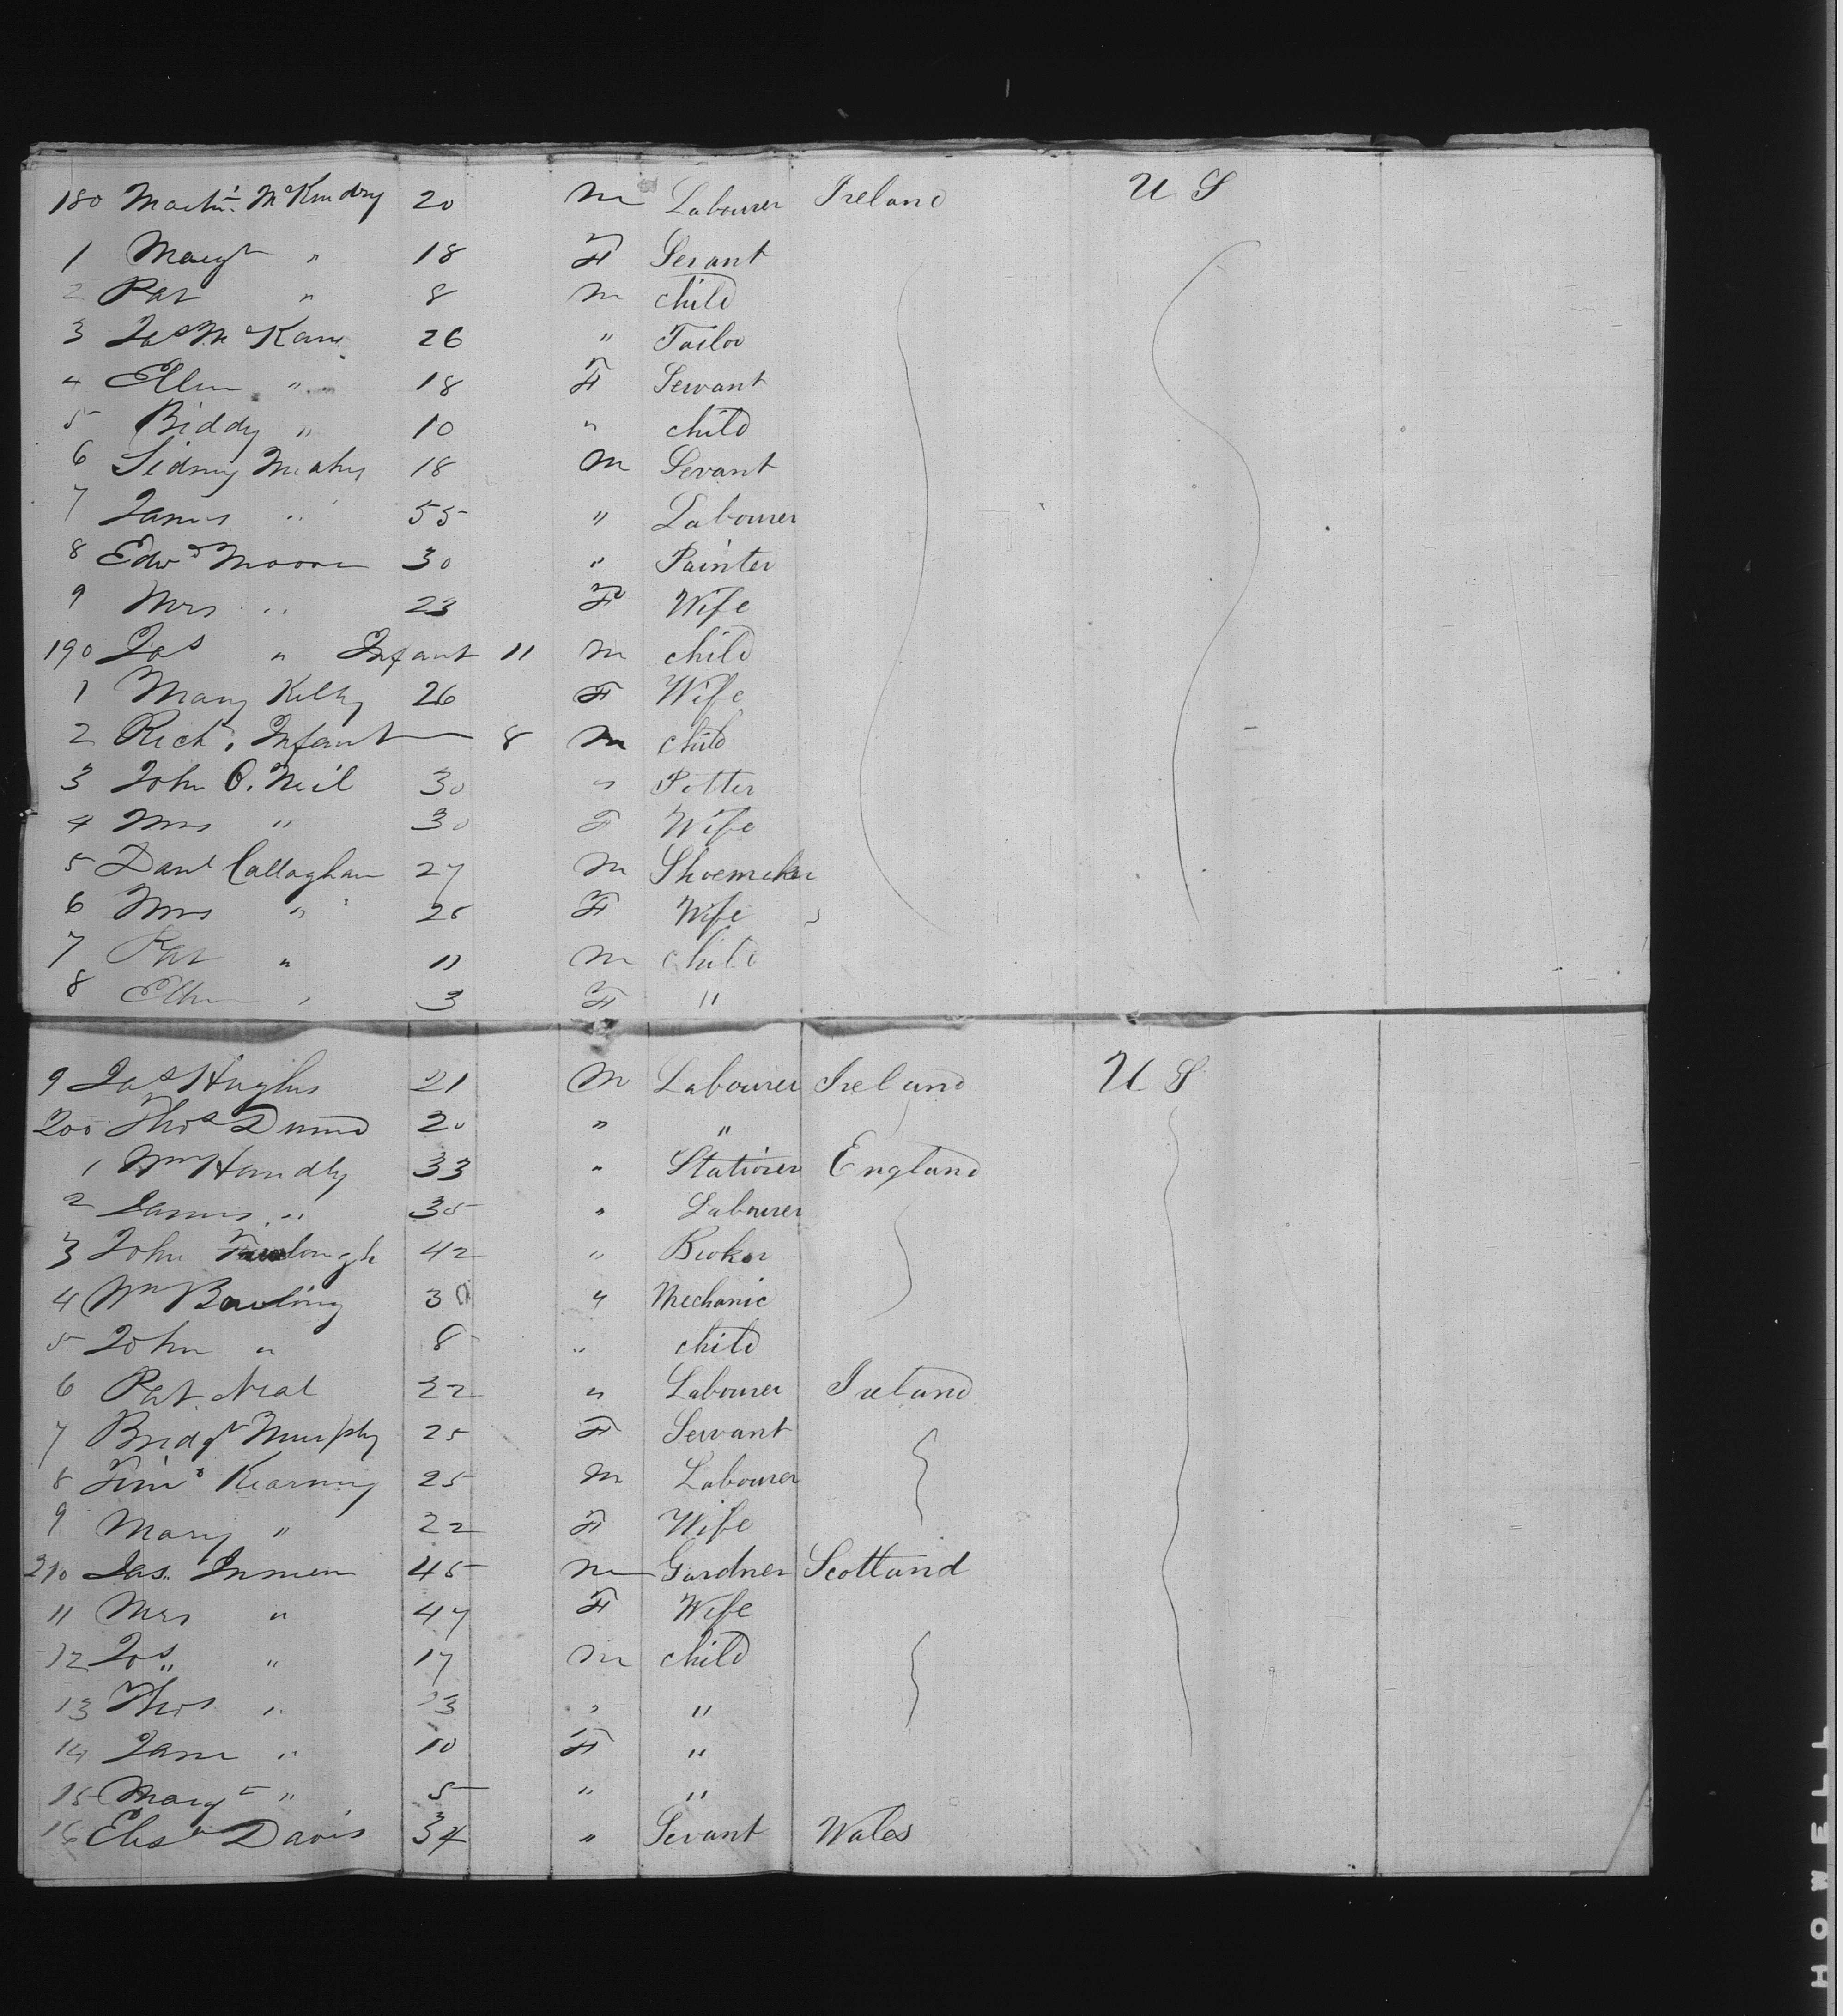 180 Martn. McKendry 20 M Labourer Ireland U S
1 Margt " 18 F Servant
2 Pat " 8 M child
3 Jas McKane 26 " Tailor
4 Ellen " 18 F Servant
5 Biddy " 10 " child
6 Sidney 18 M Servant
7 James " 55 " Labourer
8 Edwd Moore 30 " Painter
9 Mrs " 23 F Wife
190 Jas " Infant 11 M child
1 Mary Kelly 26 F Wife
2 Richd. Infant 8 M child
3 John O. Neil 30 " Potter
4 Mrs " 30 F Wife
5 Danl Callaghan 27 M Shoemaker
6 Mrs " 25 F Wife
7 Pat " 11 M child
8 Ellen " 3 F "
9 Jas Hughes 21 M Labourer Ireland U S
200 Thos 20 " "
1 Wm Handly 33 " Stationer England
2 James " 35 " Labourer
3 John 42 " Broker
4 Wm Bowling 30 " Mechanic
5 John " 8 " child
6 Pat. Neal 22 " Labourer Ireland
7 Bridgt Murphy 25 F Servant
8 Kearney 25 M Labourer
9 Mary " 22 F Wife
210 Jas. 45 M Gardner Scotland
11 Mrs " 47 F Wife
12 Jos " 17 M child
13 Thos " " "
14 Jane " 10 F "
15 Margt " 5 " "
16 Elisa Davis 34 " Servant Wales
HOWELL